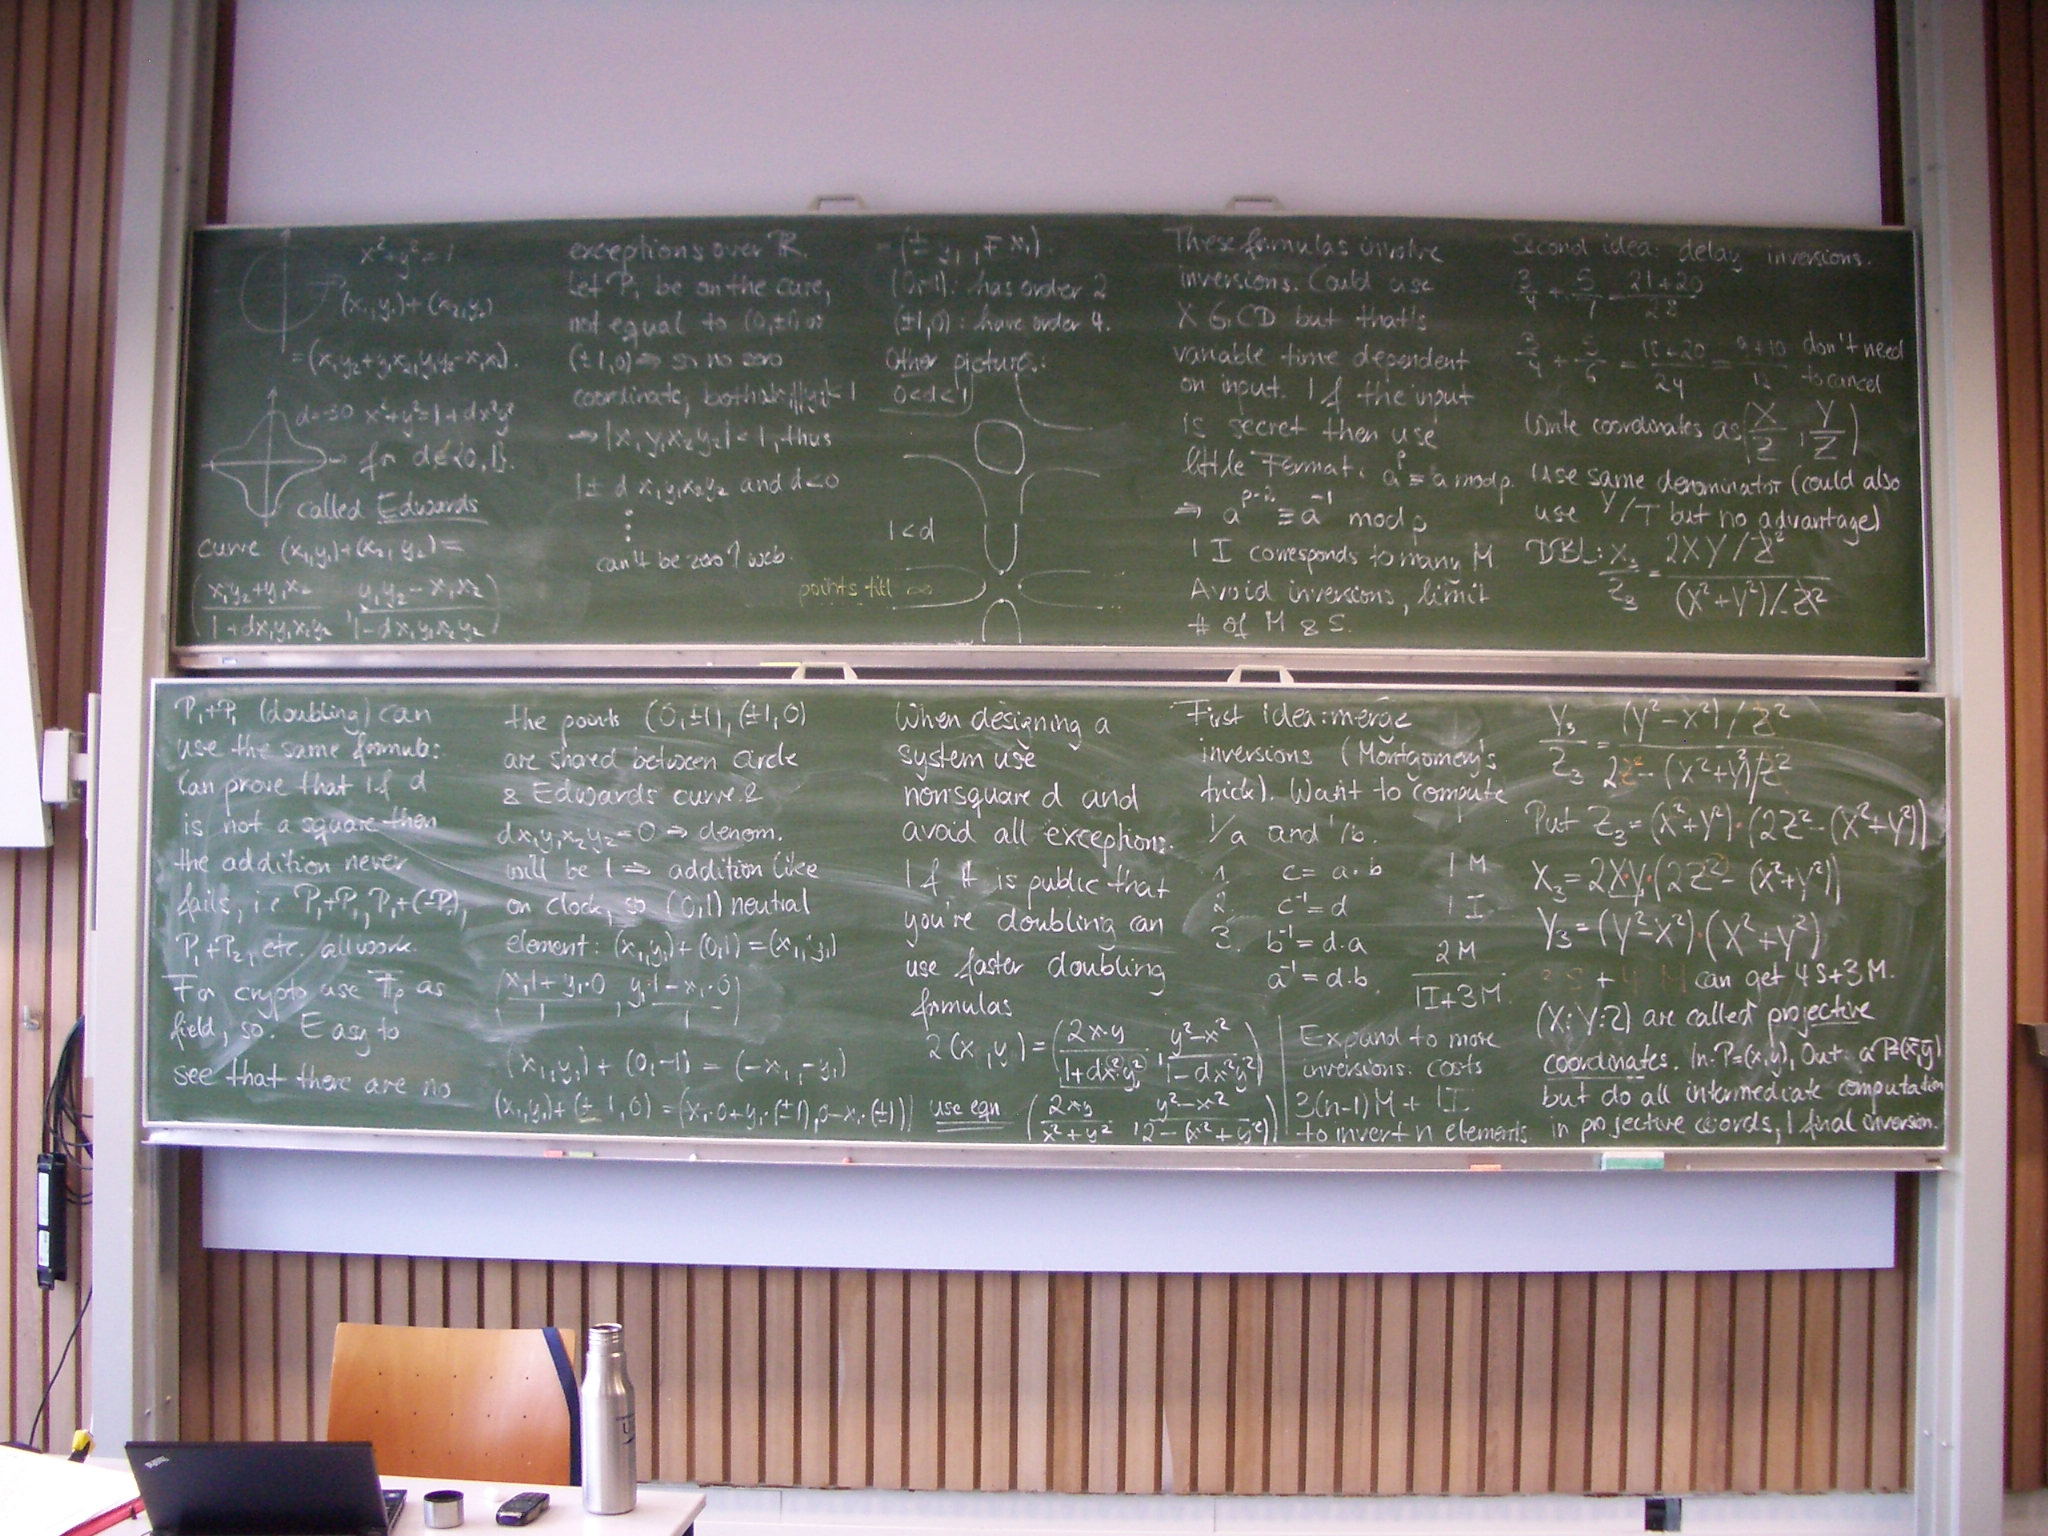 x²+y²=1
(x₁,y₁)+(x₂,y₂)
=(x₁y₂+y₁x₂,y₁y₂-x₁x₂).
d=-30 x²+y²=1+dx²y²
for d∉{0,1}.
called Edwards
curve (x₁,y₁)+(x₂,y₂)=
(x₁y₂+y₁x₂/1+dx₁y₁x₂y₂, y₁y₂-x₁x₂/1-dx₁y₁x₂y₂)
exceptions over ℝ.
Let P₁ be on the curve,
not equal to (0,±1) or
(±1,0) ⇒ so no zero
coordinate, both |x₁|,|y₁|<1
⇒ |x₁y₁x₂y₂|<1, thus
1± d x₁y₁x₂y₂ and d<0
⋮
can't be zero ↑ web.
=(± y₁, ∓ x₁).
(0,-1): has order 2
(±1,0): have order 4.
Other pictures:
0<d<1
1<d
points till ∞
These formulas involve
inversions. Could use
XGCD but that's
variable time dependent
on input. If the input
is secret then use
little Fermat: aᵖ≡a mod p.
⇒ aᵖ⁻²≡a⁻¹ mod p
1 I corresponds to many M
Avoid inversions, limit
# of M & S.
Second idea: delay inversions.
3/4+5/7=21+20/28
3/4+5/6=18+20/24=9+10/12 don't need
to cancel
Write coordinates as (X/Z, Y/Z)
Use same denominator (could also
use Y/T but no advantage)
DBL: X₃/Z₃=2XY/Z²/(X²+Y²)/Z²
P₁+P₁ (doubling) can
use the same formula:
Can prove that if d
is not a square then
the addition never
fails, i.e P₁+P₁, P₁+(-P₁),
P₁+P₂, etc. all work.
For crypto use 𝔽p as
field, so. Easy to
see that there are no
the points (0,±1),(±1,0)
are shared between circle
& Edwards curve &
dx₁y₁x₂y₂=0 ⇒ denom.
will be 1 ⇒ addition like
on clock, so (0,1) neutral
element: (x₁,y₁)+(0,1)=(x₁,y₁)
(x₁·1+y₁·0/1, y₁·1-x₁·0/1)
(x₁,y₁)+(0,-1)=(-x₁,-y₁)
(x₁,y₁)+(±1,0)=(x₁·0+y₁·(±1),0-x₁·(±1))
When designing a
system use
nonsquare d and
avoid all exceptions.
If it is public that
you're doubling can
use faster doubling
formulas
2(x,y)=(2x·y/1+dx²y², y²-x²/1-dx²y²)
use eqn (2xy/x²+y², y²-x²/2-(x²+y²))
First idea: merge
inversions (Montgomery's
trick). Want to compute
1/a and 1/b.
1. c=a·b 1M
2. c⁻¹=d 1I
3. b⁻¹=d·a 2M
a⁻¹=d·b. 1I+3M.
Expand to more
inversions: costs
3(n-1)M+1I
to invert n elements.
Y₃/Z₃=(Y²-X²)/Z²/2Z²-(X²+Y²)/Z²
Put Z₃=(X²+Y²)·(2Z²-(X²+Y²))
X₃=2X·Y·(2Z²-(X²+Y²))
Y₃=(Y²-X²)·(X²+Y²)
3S + 4M can get 4S+3M.
(X:Y:Z) are called projective
coordinates. In: P=(x,y), Out: aP=(x̄,ȳ)
but do all intermediate computation
in projective coords, 1 final inversion.